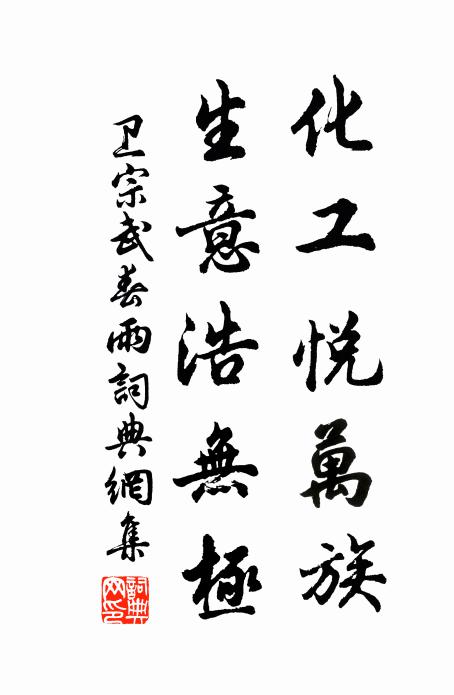 化工悦萬族
生意浩無極
卫宗武春雨詞典網集
詞典網印